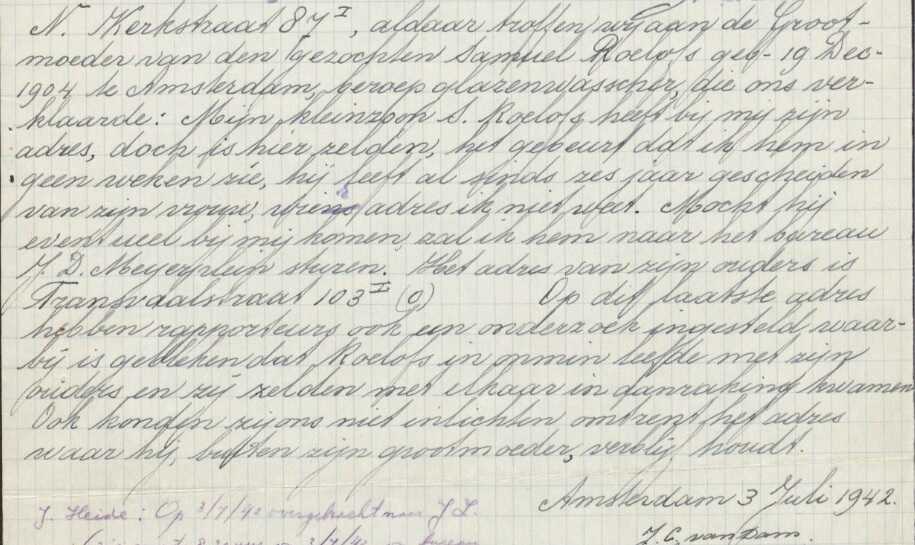 N. Kerkstraat 87 I, aldaar troffen wij aan de Groot-
moeder van den gezochten Samuel Roelofs geb- 19 Dec-
1904 te Amsterdam, beroep glazenwasscher, die ons ver-
klaarde: Mijn kleinzoon S. Roelofs heeft bij mij zijn
adres, doch is hier zelden, het gebeurt dat ik hem in
geen weken zie, hij leeft al sinds zes jaar gescheiden
van zijn vrouw, wiens adres ik niet weet. Mocht hij
eventueel bij mij komen, zal ik hem naar het bureau
J. D. Meyerplein sturen. Het adres van zijn ouders is
Transvaalstraat 103 I (o) Op dit laatste adres
hebben rapporteurs ook een onderzoek ingesteld, waar-
bij is gebleken dat Roelofs in onmin leefde met zijn
ouders en zij zelden met elkaar in aanraking kwamen
Ook konden zij ons niet inlichten omtrent het adres
waar hij, buiten zijn grootmoeder, verblijf houdt.
Amsterdam 3 Juli 1942.
J. Heide: Op 3/7/42 overgebracht naar J. L.
J. C. van Dam.
3/7/42